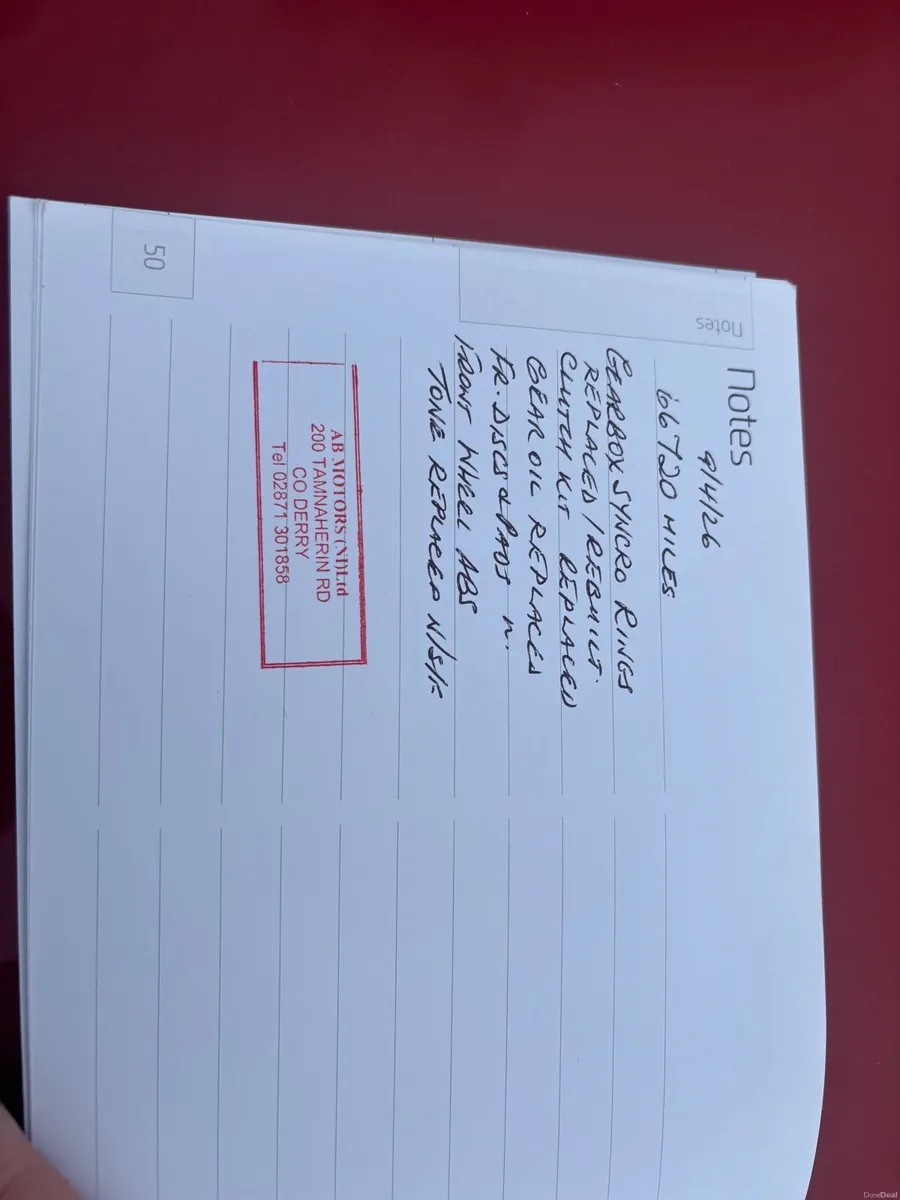 Notes
Notes
9/4/26
66720 MILES
GEARBOX SYNCRO RINGS
REPLACED/REBUILT.
CLUTCH KIT REPLACED
GEAR OIL REPLACED
FR. DISCS & PADS
FRONT WHEEL ABS
TONE REPLACED N/S/F
AB MOTORS (NI)Ltd
200 TAMNAHERIN RD
CO DERRY
Tel 02871 301858
50
DoneDeal